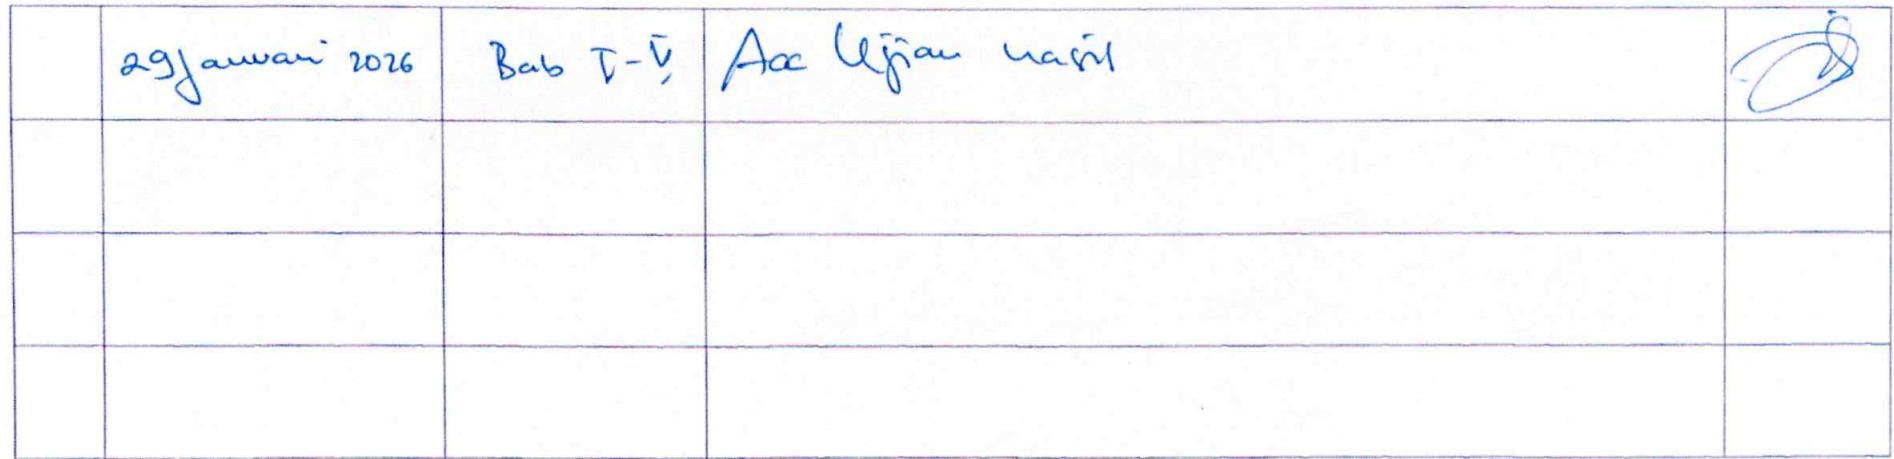 29 Januari 2026 Bab I-V, Acc Ujian hasil